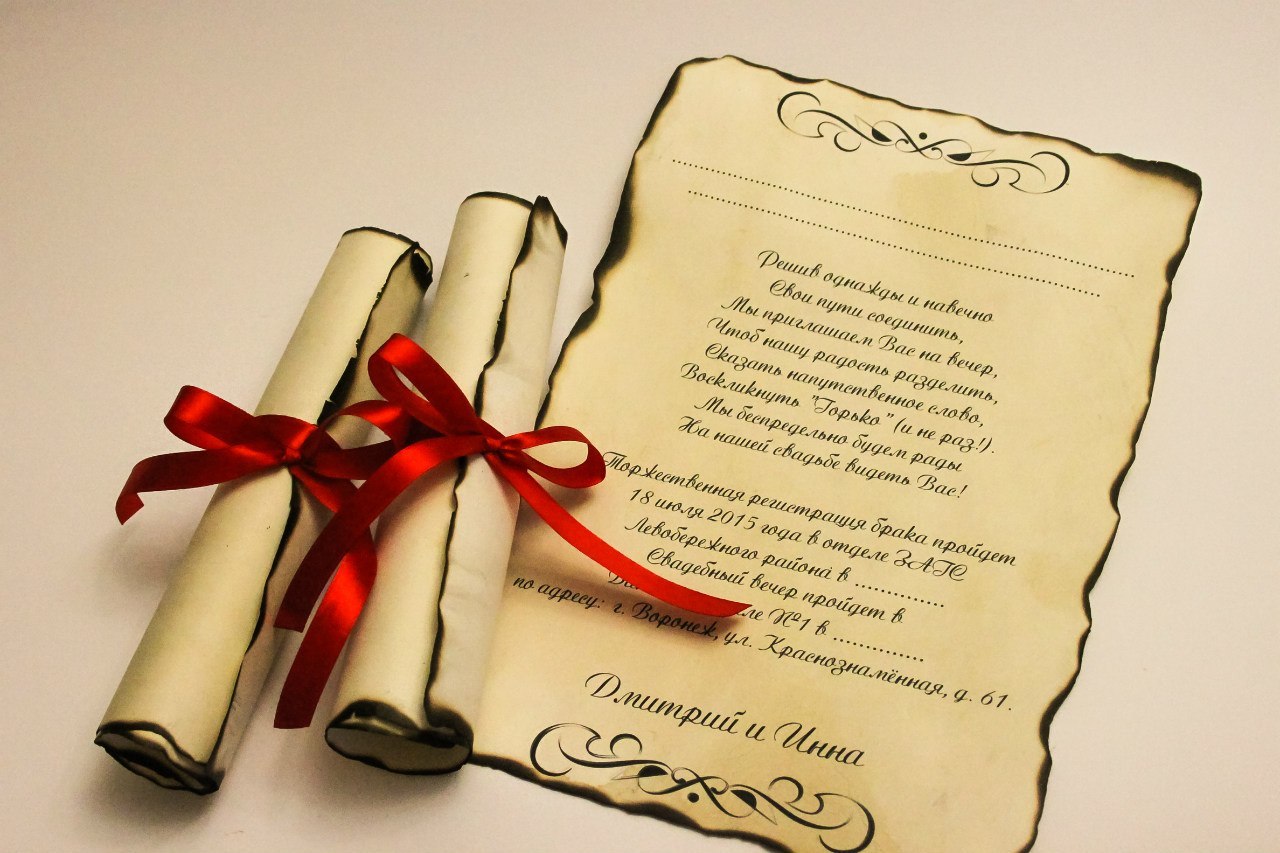 Решив однажды и навечно
Свои пути соединить,
Мы приглашаем Вас на вечер,
Чтоб нашу радость разделить,
Сказать напутственное слово,
Воскликнуть "Горько" (и не раз!).
Мы беспредельно будем рады
На нашей свадьбе видеть Вас!
Торжественная регистрация брака пройдет
18 июля 2015 года в отделе ЗАГС
Левобережного района в ...............
Свадебный вечер пройдет в
№1 в ...............
по адресу: г. Воронеж, ул. Краснознамённая, д. 61.
Дмитрий и Инна